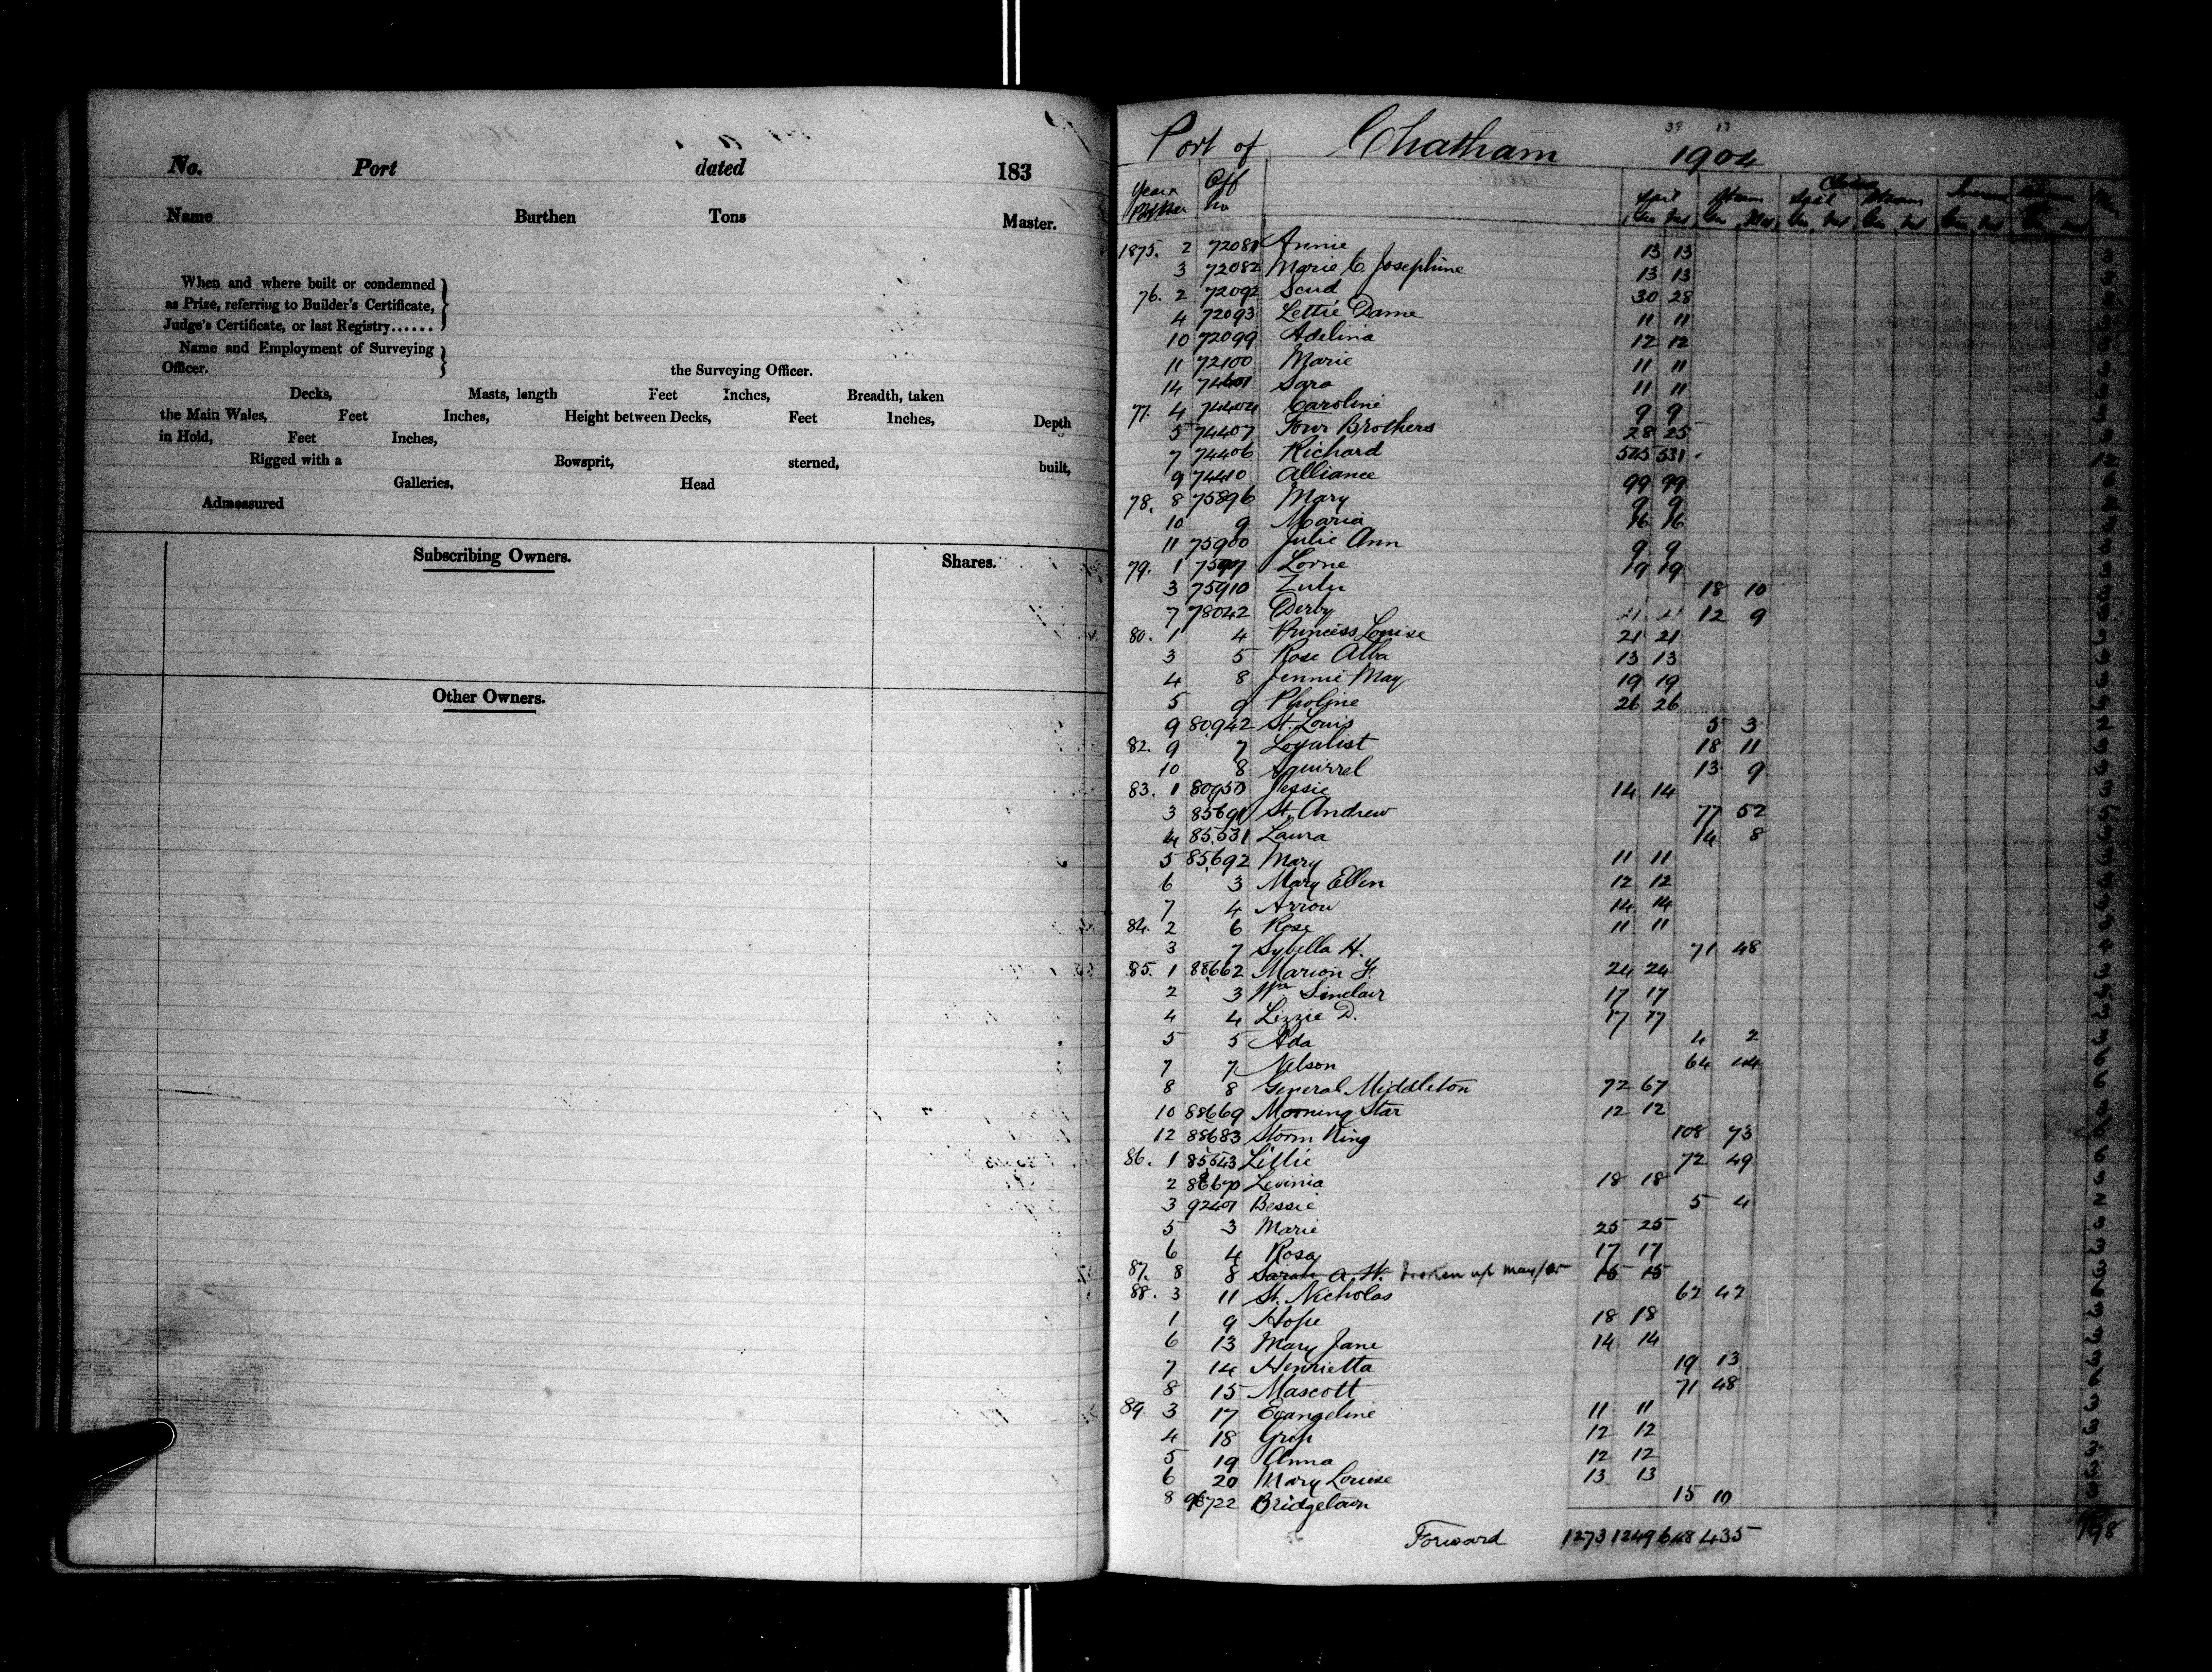 No. Port dated 183
Name Burthen Tons Master.
When and where built or condemned
as Prize, referring to Builder's Certificate,
Judge's Certificate, or last Registry......
Name and Employment of Surveying
Officer. the Surveying Officer.
Decks, Masts, length Feet Inches, Breadth, taken
the Main Wales, Feet Inches, Height between Decks, Feet Inches, Depth
in Hold, Feet Inches,
Rigged with a Bowsprit, sterned, built,
Galleries, Head
Admeasured
Subscribing Owners. Shares.
Other Owners.
39 17
Port of Chatham 1904
Year Off No Sail Steam
1875. 2 72081 Annie 13 13 3
3 72082 Marie C Josephine 13 13 3
76. 2 72092 Scud 30 28
4 72093 Lettie Dame 11 11 3
10 72099 Adelina 12 12 3
11 72100 Marie 11 11 3
14 74401 Sara 11 11 3
77. 4 74404 Caroline 9 9 3
5 74407 Four Brothers 28 25 3
7 74406 Richard 545 531
9 74410 Alliance 99 99
78. 8 75896 Mary 9 9
10 9 Maria 16 16
11 75900 Julie Ann 9 9 3
79. 1 Lorne 19 19 3
3 75910 Zulu 18 10 3
7 78042 Derby 12 9 3
80. 1 4 Princess Louise 21 21 3
3 5 Rose Alba 13 13 3
4 8 Jennie May 19 19 3
5 9 Pholine 26 26 3
9 80942 St. Louis 5 3 2
82. 9 7 Loyalist 18 11 3
10 8 Squirrel 13 9 3
83. 1 80950 Jessie 14 14 3
3 85691 St. Andrew 77 52
4 85531 Laura 14 8 3
5 85692 Mary 11 11 3
6 3 Mary Ellen 12 12 3
7 4 Arrow 14 14 3
84. 2 6 Rose 11 11 3
3 7 Sybella H. 71 48
85. 1 88662 Marion F. 24 24 3
2 3 Wm Sinclair 17 17 3
4 4 Lizzie D. 17 17 3
5 5 Ada 4 2
7 7 Nelson 64 44
8 8 General Middleton 72 67
10 88669 Morning Star 12 12
12 88683 Storm King 108 73
86. 1 85543 Lillie 72 49
2 88670 Levinia 18 18 3
3 92401 Bessie 5 4 2
5 3 Marie 25 25 3
6 4 Rosa 17 17 3
87. 8 8 Sarah A. H. broken up may/05 15 15 3
88. 3 11 St. Nicholas 62 42
1 9 Hope 18 18 3
6 13 Mary Jane 14 14 3
7 14 Henrietta 19 13
8 15 Mascott 71 48
89. 3 17 Evangeline 11 11 3
4 18 Grip 12 12 3
5 19 Anna 12 12 3
6 20 Mary Louise 13 13 3
8 96722 Bridgetown 15 10 3
Forward 1273 1249 648 435 198